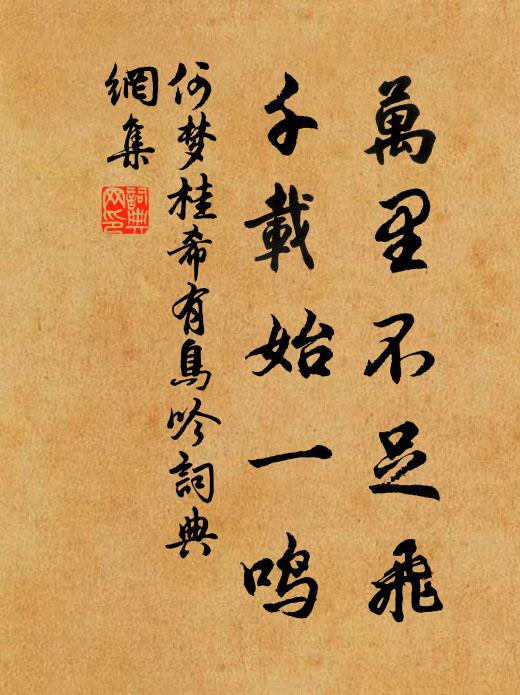 萬里不足飛
千載始一鳴
何梦桂希有鳥吟詞典
網集
詞典网印